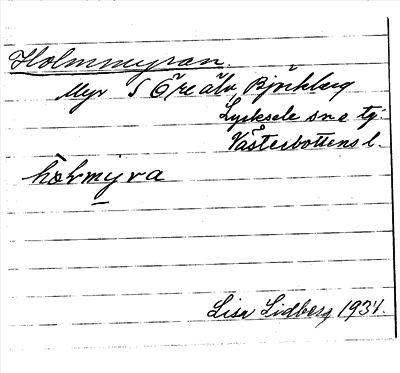 Holmmyran.
Myr S Öre älv, Björkberg
Lycksele sn o tg.
Västerbottens l.
hòlmyra
Lisa Lidberg 1934.